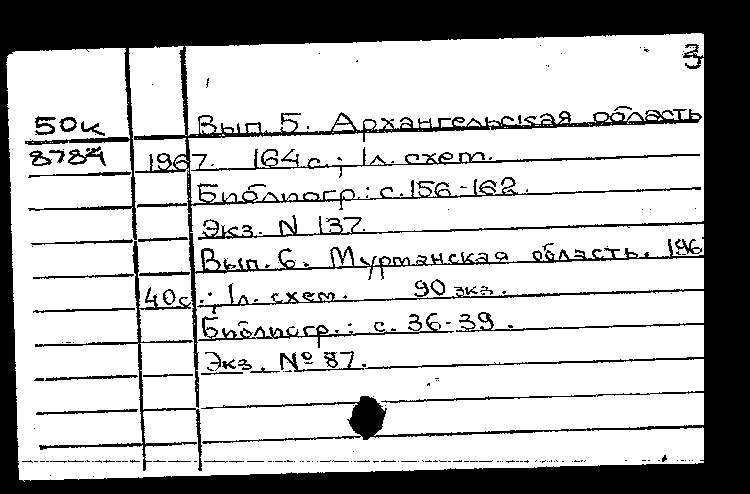 3
50к Вып. 5. Архангельская область
8784 1967. 164 с.; 1 л. схем.
Библиогр.: с. 156-162.
Экз. N 137.
Вып. 6. Мурманская область. 196
40 с.; 1 л. схем. 90 экз.
Библиогр.: с. 36-39.
Экз. № 87.